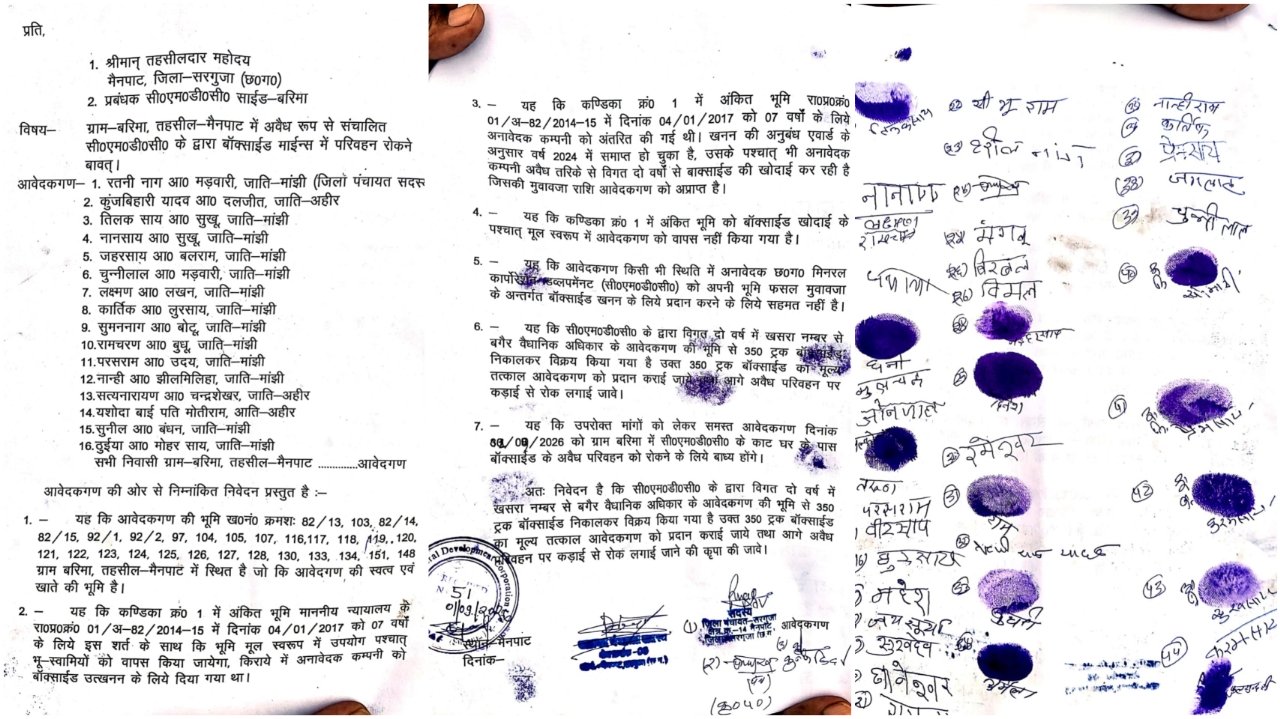 प्रति,
1. श्रीमान् तहसीलदार महोदय
मैनपाट, जिला–सरगुजा (छ0ग0)
2. प्रबंधक सी0एम0डी0सी0 साईड–बरिमा
विषय– ग्राम–बरिमा, तहसील–मैनपाट में अवैध रूप से संचालित
सी0एम0डी0सी0 के द्वारा बॉक्साईड माईन्स में परिवहन रोकने
बावत्।
आवेदकगण– 1. रतनी नाग आ0 मड़वारी, जाति–मांझी (जिला पंचायत सदस
2. कुंजबिहारी यादव आ0 दलजीत, जाति–अहीर
3. तिलक साय आ0 सुखू, जाति–मांझी
4. नानसाय आ0 सुखू, जाति–मांझी
5. जहरसाय आ0 बलराम, जाति–मांझी
6. चुन्नीलाल आ0 मड़वारी, जाति–मांझी
7. लक्ष्मण आ0 लखन, जाति–मांझी
8. कार्तिक आ0 लुरसाय, जाति–मांझी
9. सुमननाग आ0 बोटू, जाति–मांझी
10.रामचरण आ0 बुधू, जाति–मांझी
11.परसराम आ0 उदय, जाति–मांझी
12.नान्ही आ0 झीलमिलिहा, जाति–मांझी
13.सत्यनारायण आ0 चन्द्रशेखर, जाति–अहीर
14.यशोदा बाई पति मोतीराम, आति–अहीर
15.सुनील आ0 बंधन, जाति–मांझी
16.ठुईया आ0 मोहर साय, जाति–मांझी
सभी निवासी ग्राम–बरिमा, तहसील–मैनपाट .............आवेदगण
आवेदकगण की ओर से निम्नांकित निवेदन प्रस्तुत है :–
1. – यह कि आवेदकगण की भूमि ख0नं0 क्रमशः 82/13, 103, 82/14,
82/15, 92/1, 92/2, 97, 104, 105, 107, 116,117, 118, 119, 120,
121, 122, 123, 124, 125, 126, 127, 128, 130, 133, 134, 151, 148
ग्राम बरिमा, तहसील–मैनपाट में स्थित है जो कि आवेदगण की स्वत्व एवं
खाते की भूमि है।
2. – यह कि कण्डिका क्रं0 1 में अंकित भूमि माननीय न्यायालय के
रा0प्र0क्रं0 01/अ–82/2014–15 में दिनांक 04/01/2017 को 07 वर्षो
के लिये इस शर्त के साथ कि भूमि मूल स्वरूप में उपयोग पश्चात्
भू–स्वामियों को वापस किया जायेगा, किराये में अनावेदक कम्पनी को
बॉक्साईड उत्खनन के लिये दिया गया था।
3. – यह कि कण्डिका क्रं0 1 में अंकित भूमि रा0प्र0क्रं0
01/अ–82/2014–15 में दिनांक 04/01/2017 को 07 वर्षो के लिये
अनावेदक कम्पनी को अंतरित की गई थी। खनन की अनुबंध एवार्ड के
अनुसार वर्ष 2024 में समाप्त हो चुका है, उसके पश्चात् भी अनावेदक
कम्पनी अवैध तरिके से विगत दो वर्षो से बाक्साईड की खोदाई कर रही है
जिसकी मुवावजा राशि आवेदकगण को अप्राप्त है।
4. – यह कि कण्डिका क्रं0 1 में अंकित भूमि को बॉक्साईड खोदाई के
पश्चात् मूल स्वरूप में आवेदकगण को वापस नहीं किया गया है।
5. – यह कि आवेदकगण किसी भी स्थिति में अनावेदक छ0ग0 मिनरल
कार्पोरेशन डव्लपमेंनट (सी0एम0डी0सी0) को अपनी भूमि फसल मुवावजा
के अन्तर्गत बॉक्साईड खनन के लिये प्रदान करने के लिये सहमत नहीं है।
6. – यह कि सी0एम0डी0सी0 के द्वारा विगत दो वर्ष में खसरा नम्बर से
बगैर वैधानिक अधिकार के आवेदकगण की भूमि से 350 ट्रक बॉक्साईड
निकालकर विक्रय किया गया है उक्त 350 ट्रक बॉक्साईड का मूल्य
तत्काल आवेदकगण को प्रदान कराई जाये तथा आगे अवैध परिवहन पर
कड़ाई से रोक लगाई जावे।
7. – यह कि उपरोक्त मांगों को लेकर समस्त आवेदकगण दिनांक
/2026 को ग्राम बरिमा में सी0एम0डी0सी0 के काट घर के पास
बॉक्साईड के अवैध परिवहन को रोकने के लिये बाध्य होंगे।
अतः निवेदन है कि सी0एम0डी0सी0 के द्वारा विगत दो वर्ष में
खसरा नम्बर से बगैर वैधानिक अधिकार के आवेदकगण की भूमि से 350
ट्रक बॉक्साईड निकालकर विक्रय किया गया है उक्त 350 ट्रक बॉक्साईड
का मूल्य तत्काल आवेदकगण को प्रदान कराई जाये तथा आगे अवैध
परिवहन पर कड़ाई से रोक लगाई जाने की कृपा की जावे।
51
स्थान–मैनपाट
दिनांक–
सदस्य
जिला पंचायत–सरगुजा
आवेदकगण
नानसाय
मंगलू
बिरबल
विमल
रमेश्वर
परसराम
वीरसाय
महेश
जयसूर्या
सुखदेव
नान्हीराम
कार्तिक
प्रेमसाय
जगलाल
चुन्नी लाल